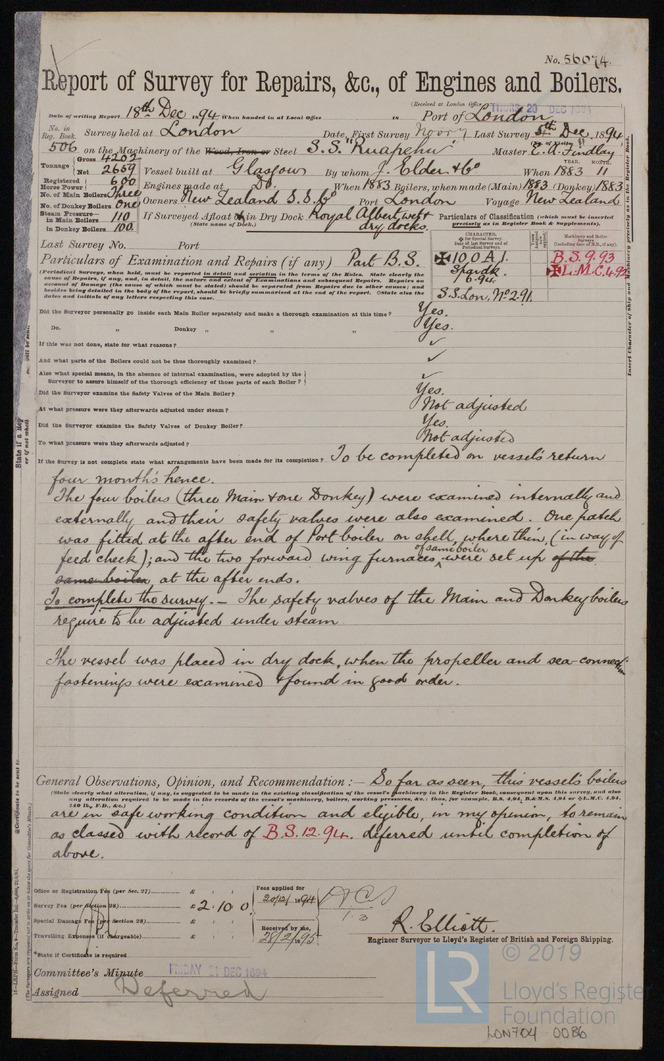 No. 56074.
Report of Survey for Repairs, &c., of Engines and Boilers.
(Received at London Office THURS 20 DEC 1894
Date of writing Report 18th Dec 1894 When handed in at Local Office 18 Port of London
No. in Reg. Book. Survey held at London Date, First Survey Novr 9 Last Survey 5th Dec, 1894
506 on the Machinery of the Wood, Iron or Steel S.S. "Ruapehu" Master E. A. Findlay
Tonnage Gross 4202 Net 2659 Vessel built at Glasgow By whom J. Elder & Co When 1883 11
Registered Horse Power 600 Engines made at Do. When 1883 Boilers, when made (Main) 1883 (Donkey) 1883
No. of Main Boilers Three Owners New Zealand S.S. Co Port London Voyage New Zealand
No. of Donkey Boilers One
Steam Pressure—in Main Boilers 110 If Surveyed Afloat or in Dry Dock Royal Albert, wet & dry docks.
in Donkey Boilers 100 (State name of Dock.)
Particulars of Classification (which must be inserted precisely as in Register Book & Supplements).
Last Survey No. Port
Particulars of Examination and Repairs (if any) Part B.S.
✠ 100 A.1.
Spar dk
6.94
S.S. Lon. No 2-91.
B.S. 9.93
✠ L.M.C. 4.92
(Periodical Surveys, when held, must be reported in detail and seriatim in the terms of the Rules. State clearly the
cause of Repairs, if any, and, in detail, the nature and extent of Examinations and subsequent Repairs. Repairs on
account of Damage (the cause of which must be stated) should be separated from Repairs due to other causes; and
besides being detailed in the body of the report, should be briefly summarised at the end of the report. (State also the
dates and initials of any letters respecting this case.
Did the Surveyor personally go inside each Main Boiler separately and make a thorough examination at this time? Yes.
Do. " Donkey " " " " Yes.
If this was not done, state for what reasons? ✓
And what parts of the Boilers could not be thus thoroughly examined? ✓
Also what special means, in the absence of internal examination, were adopted by the
Surveyor to assure himself of the thorough efficiency of those parts of each Boiler? ✓
Did the Surveyor examine the Safety Valves of the Main Boiler? Yes.
At what pressure were they afterwards adjusted under steam? Not adjusted
Did the Surveyor examine the Safety Valves of Donkey Boiler? Yes.
To what pressure were they afterwards adjusted? Not adjusted
If the Survey is not complete state what arrangements have been made for its completion? To be completed on vessel's return
four months hence.
The four boilers (three Main & one Donkey) were examined internally and
externally and their safety valves were also examined. One patch
was fitted at the after end of Port boiler on shell, where thin, (in way of
feed check); and the two forward wing furnaces of same boiler were set up of the
same boiler at the after ends.
To complete the survey. – The safety valves of the Main and Donkey boilers
require to be adjusted under steam
The vessel was placed in dry dock, when the propeller and sea-connection
fastenings were examined & found in good order.
General Observations, Opinion, and Recommendation:— So far as seen, this vessel's boilers
(State clearly what alteration, if any, is suggested to be made in the existing classification of the vessel's machinery in the Register Book, consequent upon this survey, and also
any alteration required to be made in the records of the vessel's machinery, boilers, working pressures, &c.: thus, for example, B.S. 4,94, B.&M.S. 4,94 or ✠L.M.C. 4,94.
140 lb., F.D., &c.)
are in safe working condition and eligible, in my opinion, to remain
as classed with record of B.S. 12.94. deferred until completion of
above.
Office or Registration Fee (per Sec. 27) £ : :
Survey Fee (per Section 28) £ 2 : 10 : 0
Special Damage Fee (per Section 28) £ : :
Travelling Expenses (if chargeable) £ : :
Fees applied for
20/12/1894
Received by me,
28/2/1895
R. Elliott.
Engineer Surveyor to Lloyd's Register of British and Foreign Shipping.
*State if Certificate is required
Committee's Minute FRIDAY 21 DEC 1894
Assigned Deferred
© 2019
LR
Lloyd's Register
Foundation
LON704-0086